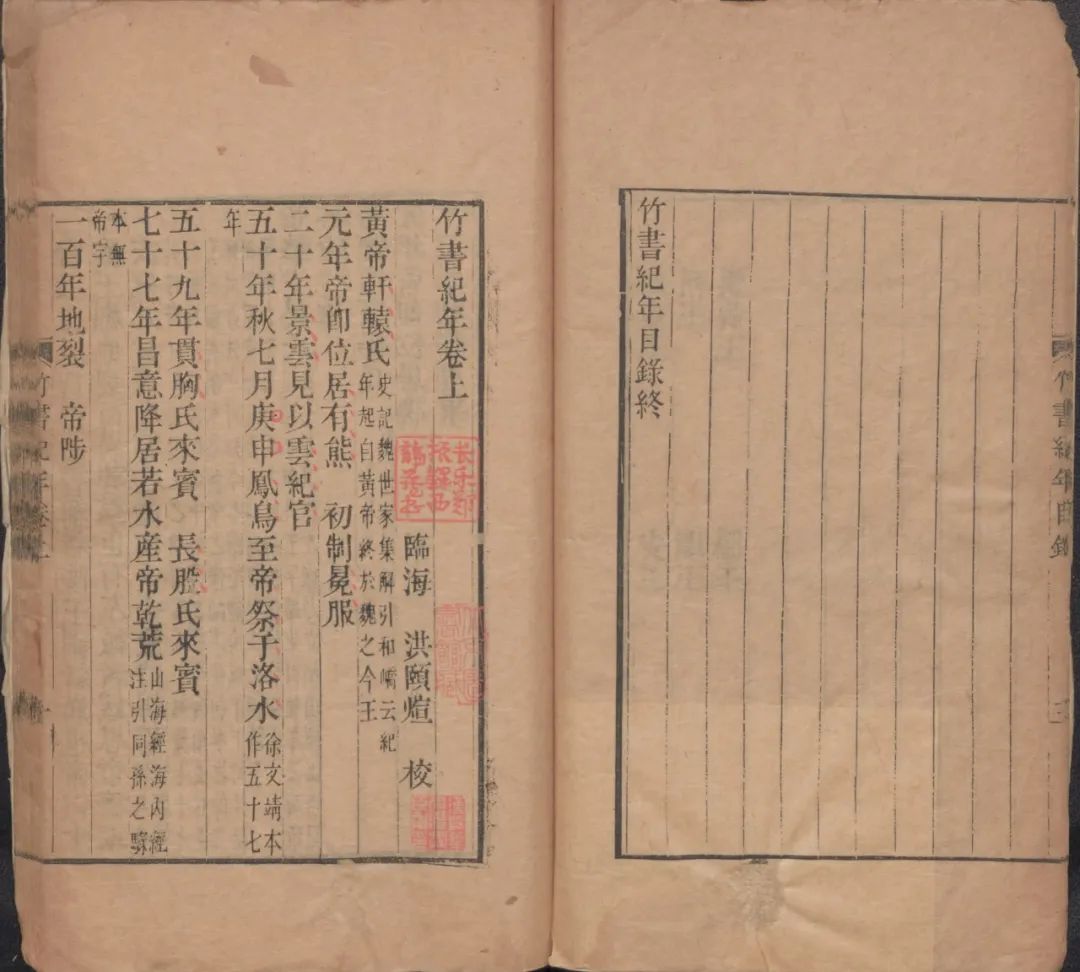 竹書紀年目錄終
竹書紀年目錄
三
竹書紀年卷上
臨海 洪頤煊 校
黃帝軒轅氏史記魏世家集解引和嶠云紀年起自黃帝終於魏之今王
元年帝卽位居有熊 初制冕服
二十年景雲見以雲紀官
五十年秋七月庚申鳳鳥至帝祭于洛水徐文靖本作五十七
年
五十九年貫胸氏來賓 長股氏來賓
七十七年昌意降居若水產帝乾荒山海經海內經注引同孫之騄
本無帝字
一百年地裂 帝陟
竹書紀年卷上
一
長樂鄭
振鐸西
諦藏書